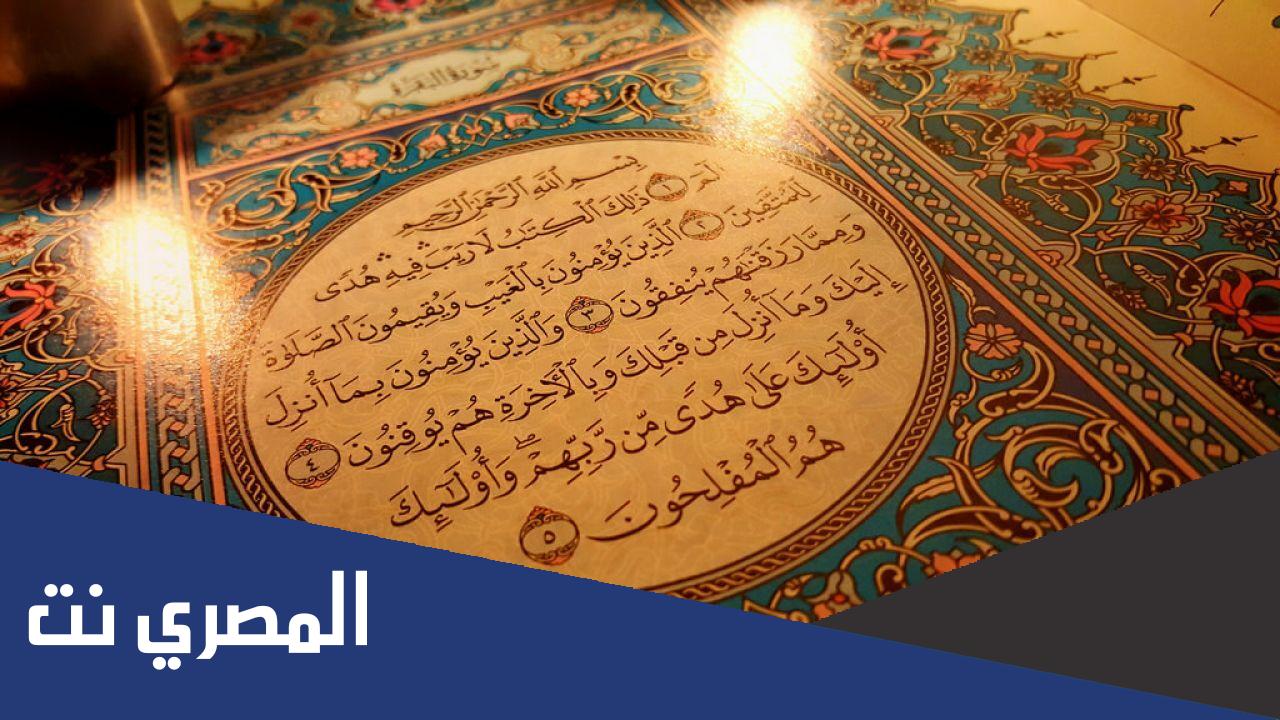 سُورَةُ البَقَرَة
بِسْمِ ٱللَّهِ ٱلرَّحْمَٰنِ ٱلرَّحِيمِ
الٓمٓ ١ ذَٰلِكَ ٱلْكِتَٰبُ لَا رَيْبَ ۛ فِيهِ ۛ هُدًى
لِّلْمُتَّقِينَ ٢ ٱلَّذِينَ يُؤْمِنُونَ بِٱلْغَيْبِ وَيُقِيمُونَ ٱلصَّلَوٰةَ
وَمِمَّا رَزَقْنَٰهُمْ يُنفِقُونَ ٣ وَٱلَّذِينَ يُؤْمِنُونَ بِمَآ أُنزِلَ
إِلَيْكَ وَمَآ أُنزِلَ مِن قَبْلِكَ وَبِٱلْءَاخِرَةِ هُمْ يُوقِنُونَ ٤
أُو۟لَٰٓئِكَ عَلَىٰ هُدًى مِّن رَّبِّهِمْ ۖ وَأُو۟لَٰٓئِكَ
هُمُ ٱلْمُفْلِحُونَ ٥
المصري نت